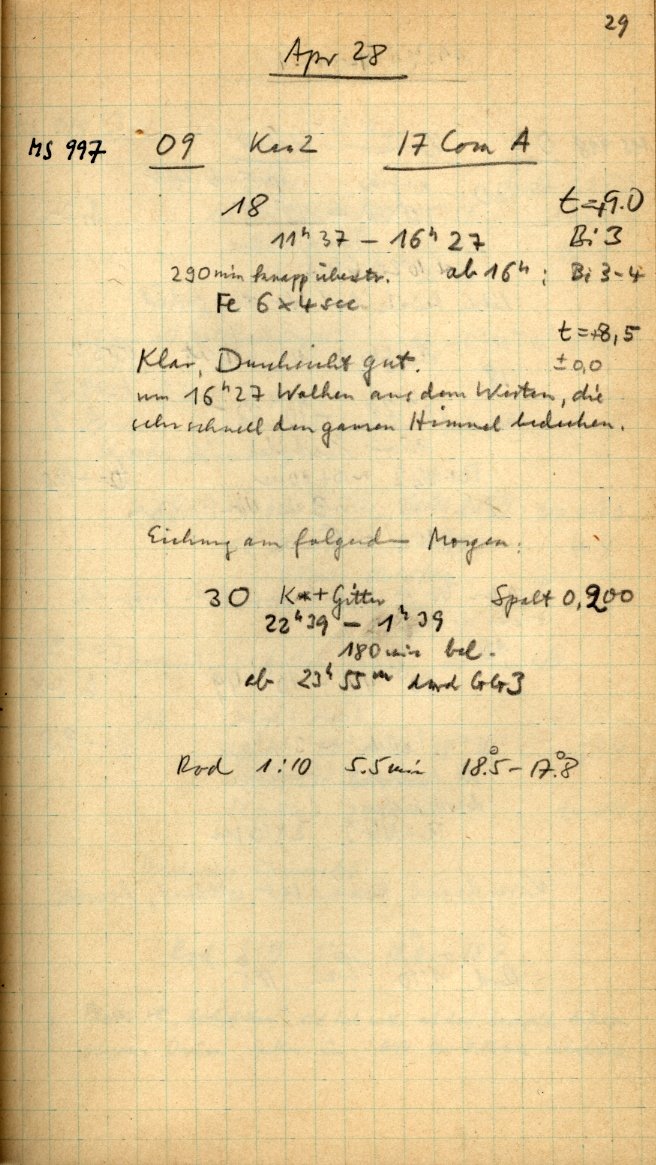 29
Apr 28
MS 997 09 Kas2 17 Com A
18 t=+9.0
11ʰ37 – 16ʰ27 Bi 3
290 min knapp überstr. ab 16ʰ: Bi 3-4
Fe 6×4 sec
t=+8,5
Klar, Durchsicht gut. ±0,0
um 16ʰ27 Wolken aus dem Westen, die
sehr schnell den ganzen Himmel bedecken.
Eichung am folgenden Morgen.
30 K*+Gitter Spalt 0,200
22ʰ39 – 1ʰ39
180 min bel.
ab 23ʰ55ᵐ durch GrGr3
Rod 1:10 5.5 min 18.°5 – 17.°8